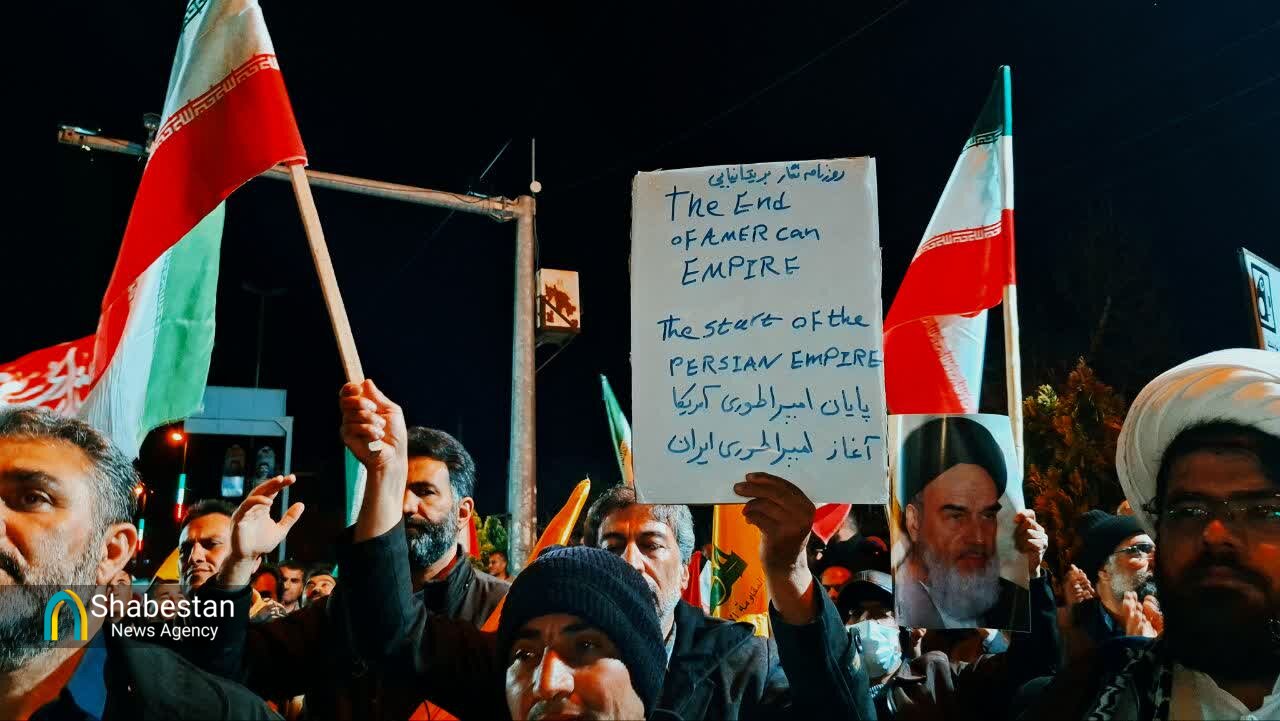 روزنامه نگار بریتانیایی
The End
OF AMERCan
EMPIRE
The start of the
PERSIAN EMPIRE
پایان امپراطوری آمریکا
آغاز امپراطوری ایران
Shabestan
News Agency